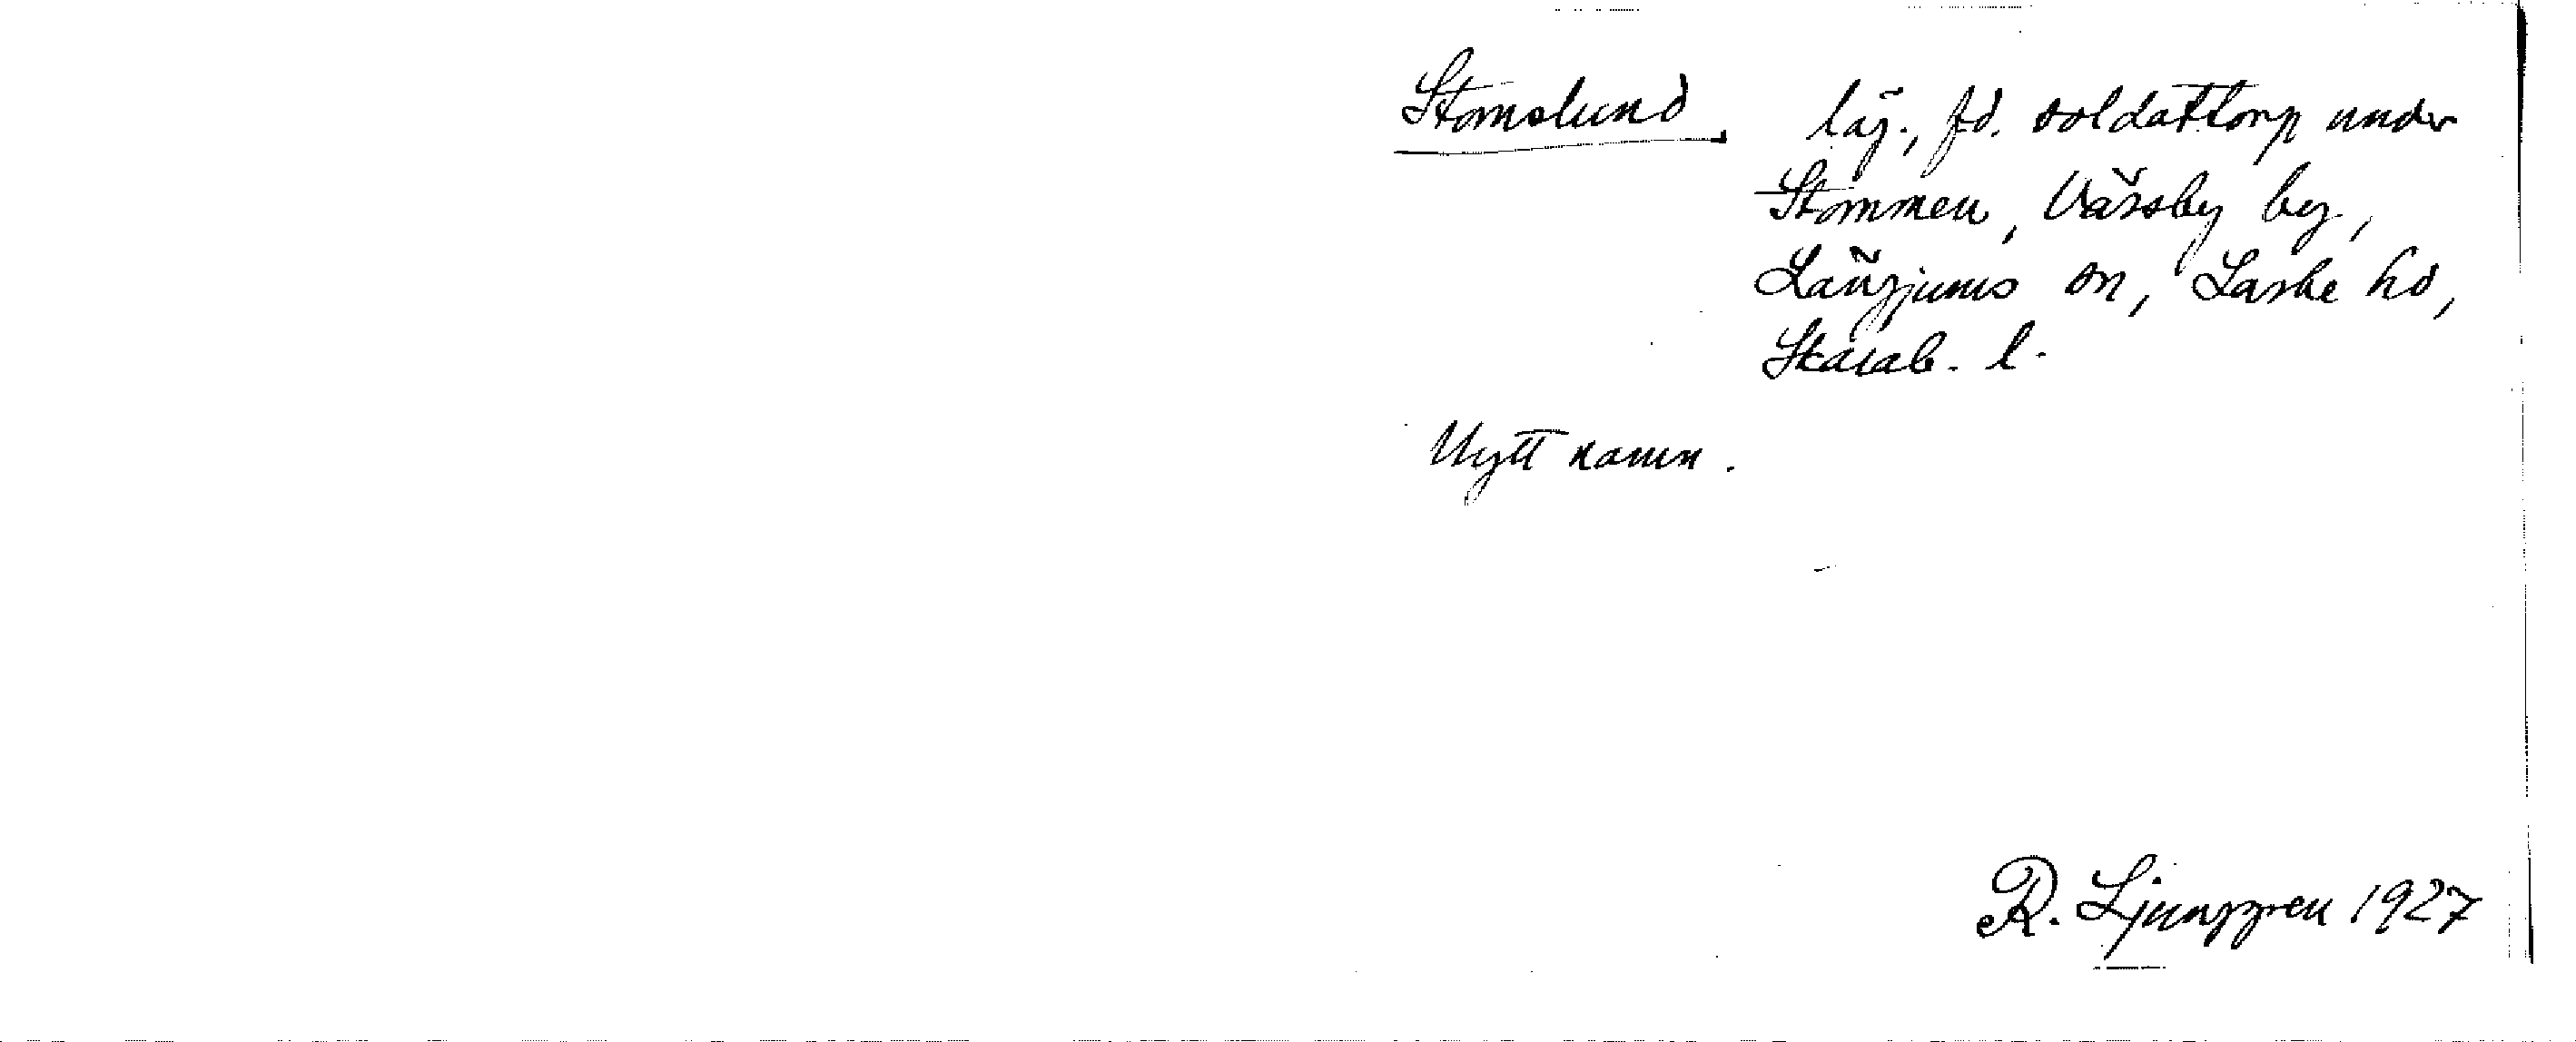 Stomslund
läg., fd. soldattorp under
Stommen, Vässby by,
Längjums sn, Laske hd,
Skarab. l.
Nytt namn.
R. Ljunggren 1927